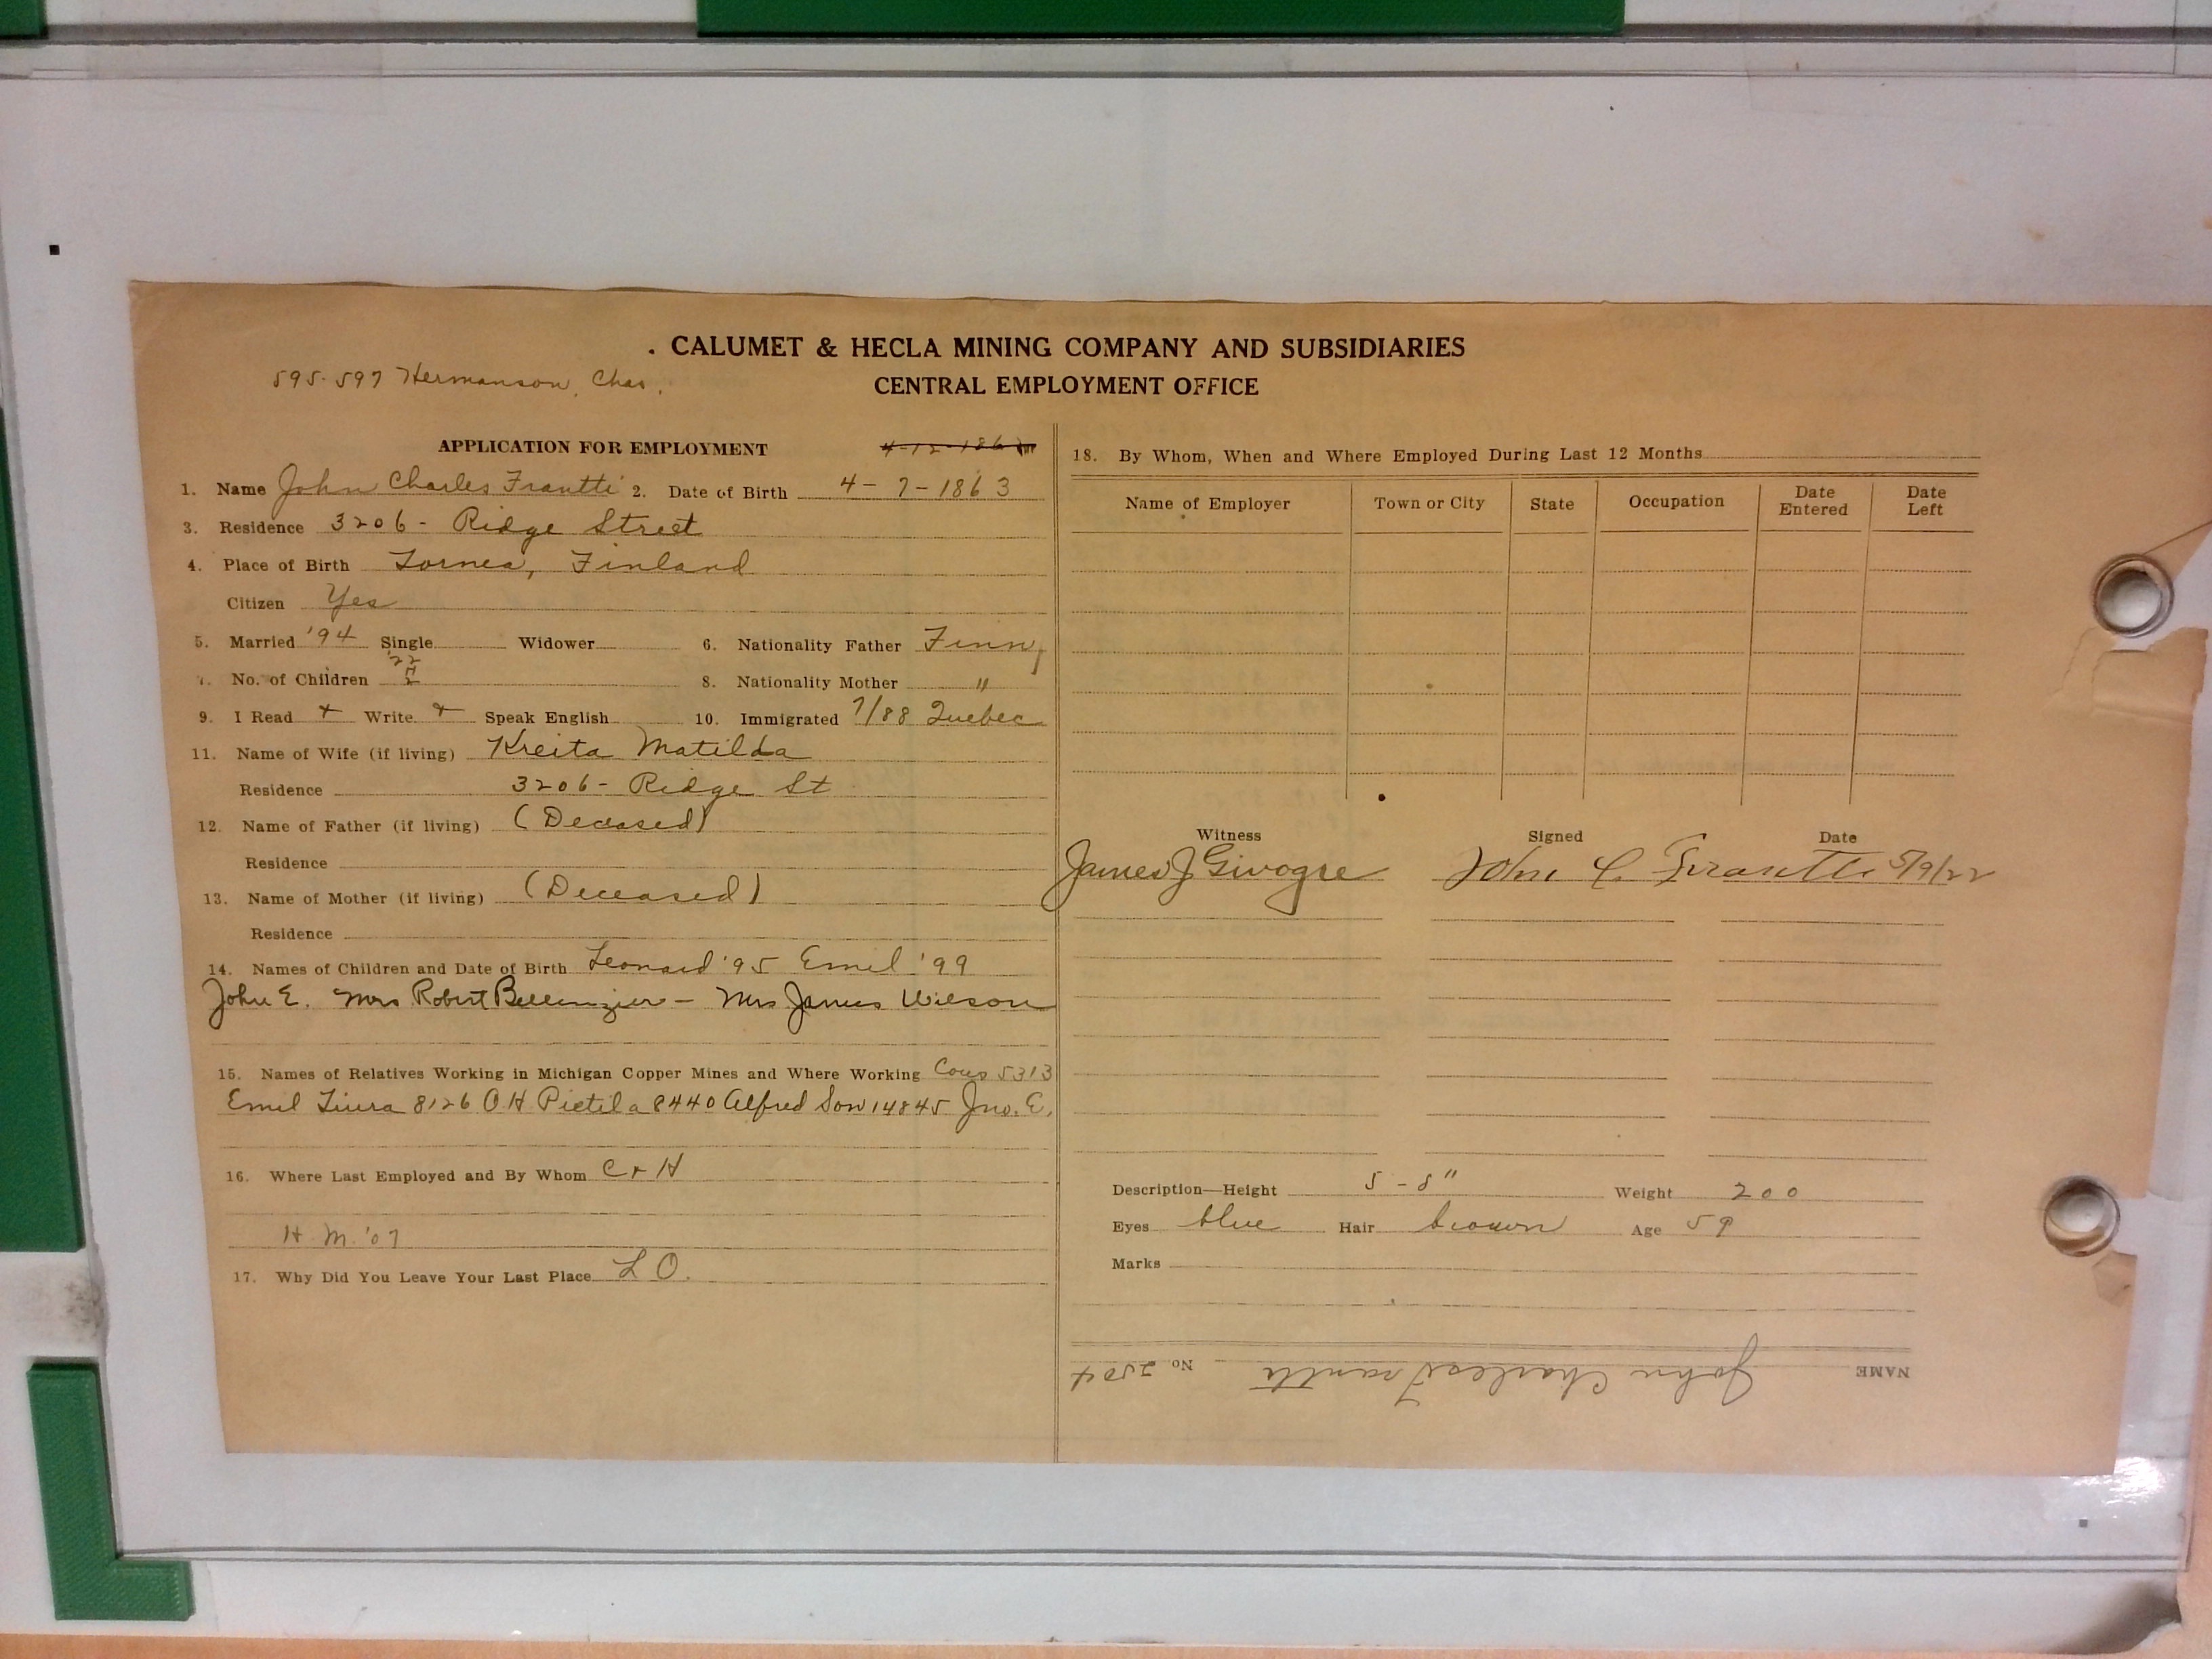 CALUMET & HECLA MINING COMPANY AND SUBSIDIARIES
595-597 Hermanson, Chas.
CENTRAL EMPLOYMENT OFFICE
APPLICATION FOR EMPLOYMENT
1. Name John Charles Frantti 2. Date of Birth 4-7-1863
3. Residence 3206- Ridge Street
4. Place of Birth Tornea, Finland
Citizen Yes
5. Married '94 Single Widower 6. Nationality Father Finn
7. No. of Children 8. Nationality Mother "
9. I Read + Write + Speak English 10. Immigrated 7/88 Quebec
11. Name of Wife (if living) Kreita Matilda
Residence 3206- Ridge St
12. Name of Father (if living) (Deceased)
Residence
13. Name of Mother (if living) (Deceased)
Residence
14. Names of Children and Date of Birth Leonard '95 Emil '99
John E. Mrs Robert - Mrs James Wilson
15. Names of Relatives Working in Michigan Copper Mines and Where Working Cous 5313
Emil 8126 O.H. Pietila 8440 Alfred Son 14845 Jno. E.
16. Where Last Employed and By Whom C + H
H. M. '07
17. Why Did You Leave Your Last Place L O.
18. By Whom, When and Where Employed During Last 12 Months
Name of Employer Town or City State Occupation Date Entered Date Left
Witness Signed Date
James J John C. Frantti 5/9/22
Description—Height 5-8" Weight 200
Eyes blue Hair brown Age 59
Marks
NAME John Charles Frantti No. 2504